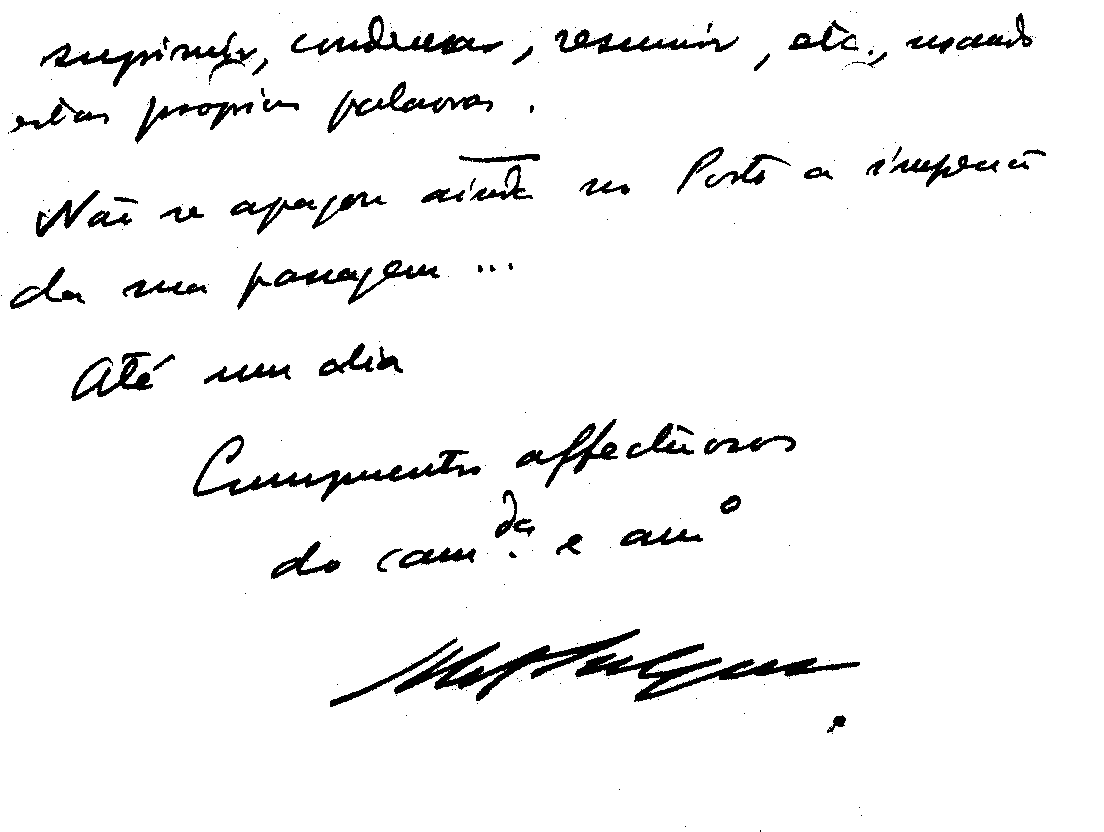 suprimir, condensar, resumir, etc., usando
estas proprias palavras.
Não se apagou ainda no Porto a
da sua passagem...
Até um dia
Cumprimentos affectuosos
do cam.da e am.o